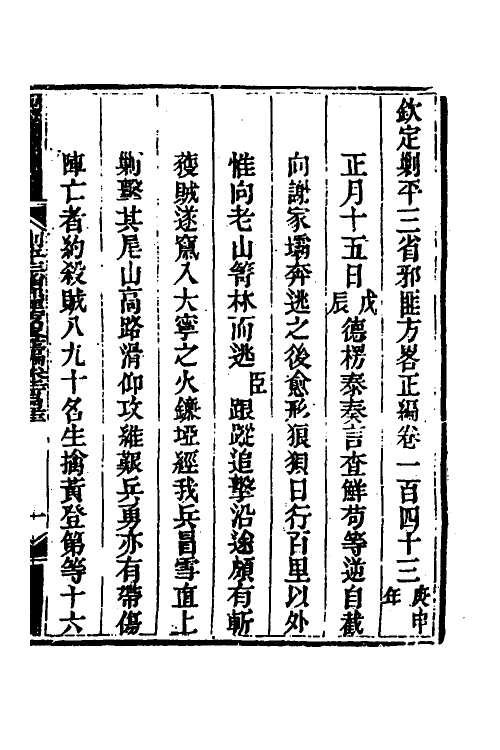 欽定剿平三省邪匪方畧正編卷一百四十三庚申年
正月十五日戊辰德楞泰奏言查鮮苟等逆自截
向謝家壩奔逃之後愈形狼狽日行百里以外
惟向老山箐林而逃臣跟蹤追擊沿途頗有斬
獲賊遂竄入大寧之火鐮埡經我兵冒雪直上
剿擊其尾山高路滑仰攻維艱兵勇亦有帶傷
陣亡者約殺賊八九十名生擒黃登第等十六